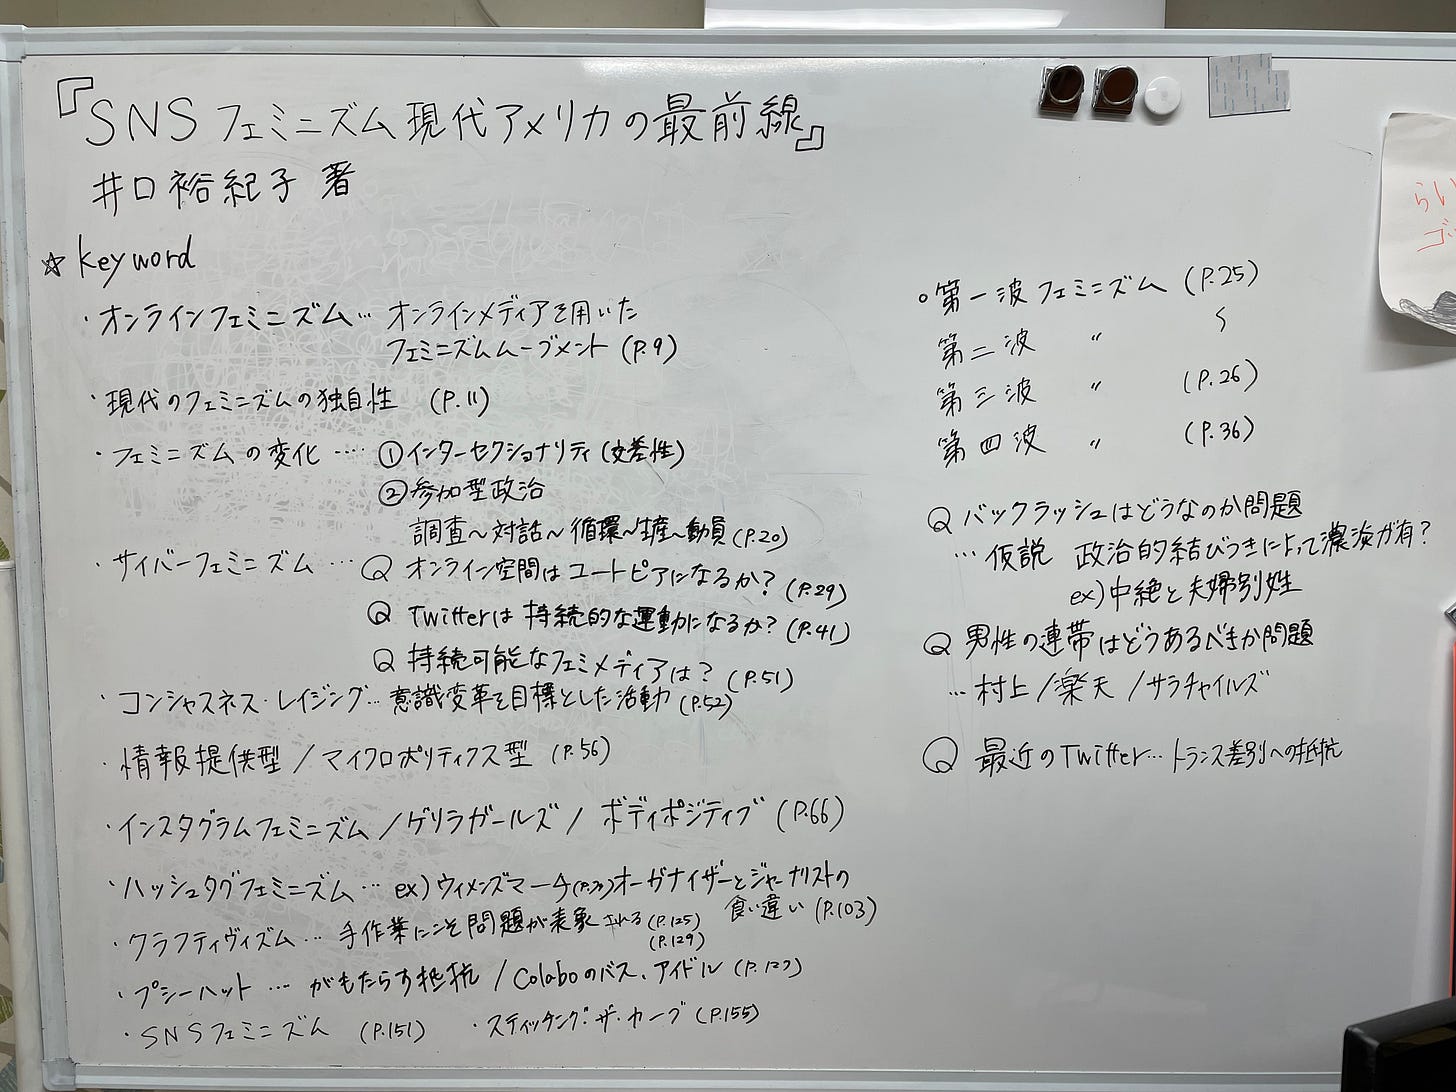 『SNSフェミニズム現代アメリカの最前線』
井口裕紀子 著
☆ keyword
・オンラインフェミニズム… オンラインメディアを用いた
フェミニズムムーブメント (P.9)
・現代のフェミニズムの独自性 (P.11)
・フェミニズムの変化 …. ①インターセクショナリティ(交差性)
②参加型政治
調査～対話～循環～生産～動員(P.20)
・サイバーフェミニズム … Q オンライン空間はユートピアになるか? (P.29)
Q Twitterは持続的な運動になるか? (P.41)
Q 持続可能なフェミメディアは? (P.51)
・コンシャスネス・レイジング… 意識変革を目標とした活動 (P.52)
・情報提供型 / マイクロポリティクス型 (P.56)
・インスタグラムフェミニズム / ゲリラガールズ / ボディポジティブ (P.66)
・ハッシュタグフェミニズム… ex) ウィメンズマーチ オーガナイザーとジャーナリストの
食い違い (P.103)
・クラフティヴィズム… 手作業にこそ問題が表象される (P.125)
(P.129)
・プシーハット … がもたらす抵抗 / Colaboのバス、アイドル
・SNSフェミニズム (P.151) ・スティッチング・ザ・カーブ (P.155)
○第一波フェミニズム (P.25)
第二波 〃 〜
第三波 〃 (P.26)
第四波 〃 (P.36)
Q バックラッシュはどうなのか問題
… 仮説 政治的結びつきによって濃淡が有?
ex) 中絶と夫婦別姓
Q 男性の連帯はどうあるべきか問題
… 村上 / 楽天 / サラチャイルズ
Q 最近のTwitter… トランス差別への抵抗
らい